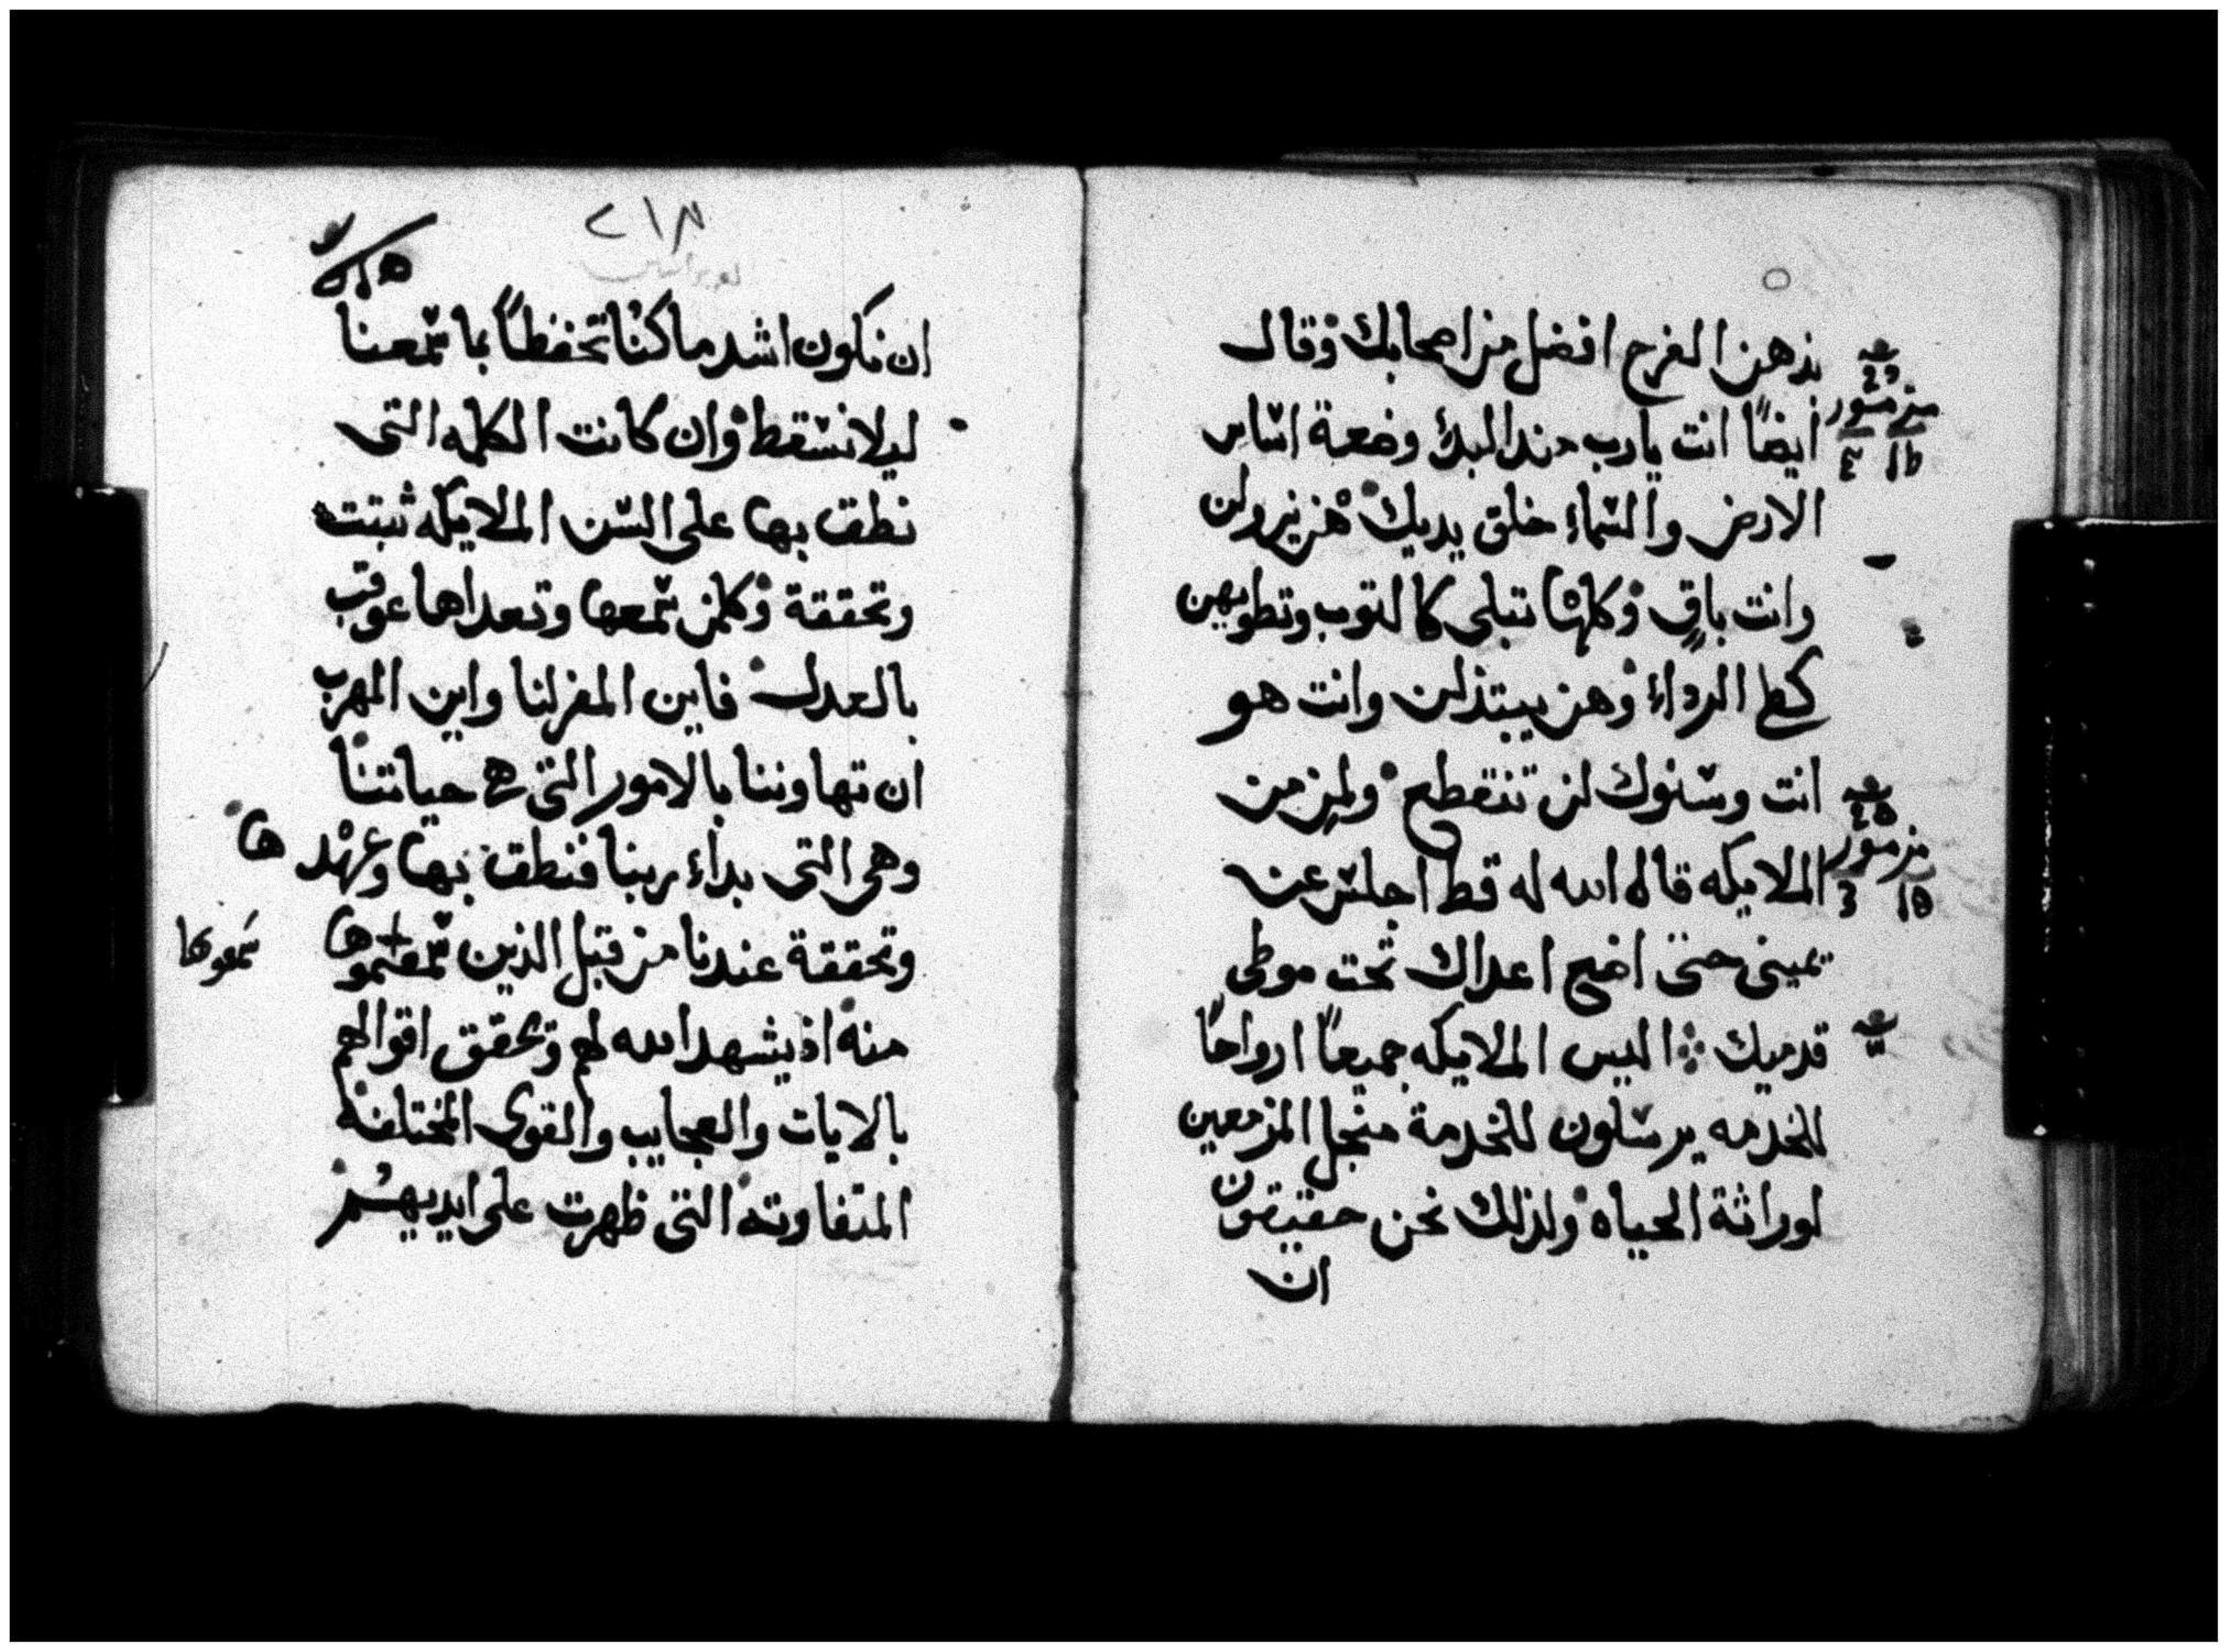 بدهن الفرح افضل من اصحابك وقال
ايضًا انت يارب منذ البدء وضعة اساس
الارض والسماء خلق يديك هن يزولن
وانت باقٍ وكلها تبلى كالتوب وتطويهن
كطى الرداء وهن يبتذلن وانت هو
انت وسنوك لن تنقطع ولمن من
الملايكه قال الله له قط اجلس عن
يمينى حتى اضع اعداك تحت موطى
قدميك اليس الملايكه جميعًا ارواحًا
للخدمه يرسلون للخدمة منجل المزمعين
لوراثة الحياه ولذلك نحن حقيقون
ان
مزمور
مزمور
٢١٨
ان نكون اشد ما كنا تحفظًا بما سمعنا
ليلا نسقط وان كانت الكلمه التى
نطق بها على السن الملايكه ثبتت
وتحققة وكلمن سمعها وتعداها عوقب
بالعدل فاين المفر لنا واين المهرب
ان تهاوننا بالامور التى هى حياتنا
وهى التى بداء ربنا فنطق بها وعهد ها
وتحققة عندنا من قبل الذين سمعتموها
سمعوها
منه اذ يشهد الله لهم وتحقق اقوالهم
بالايات والعجايب والقوى المختلفة
المتفاوته التى ظهرت على ايديهم